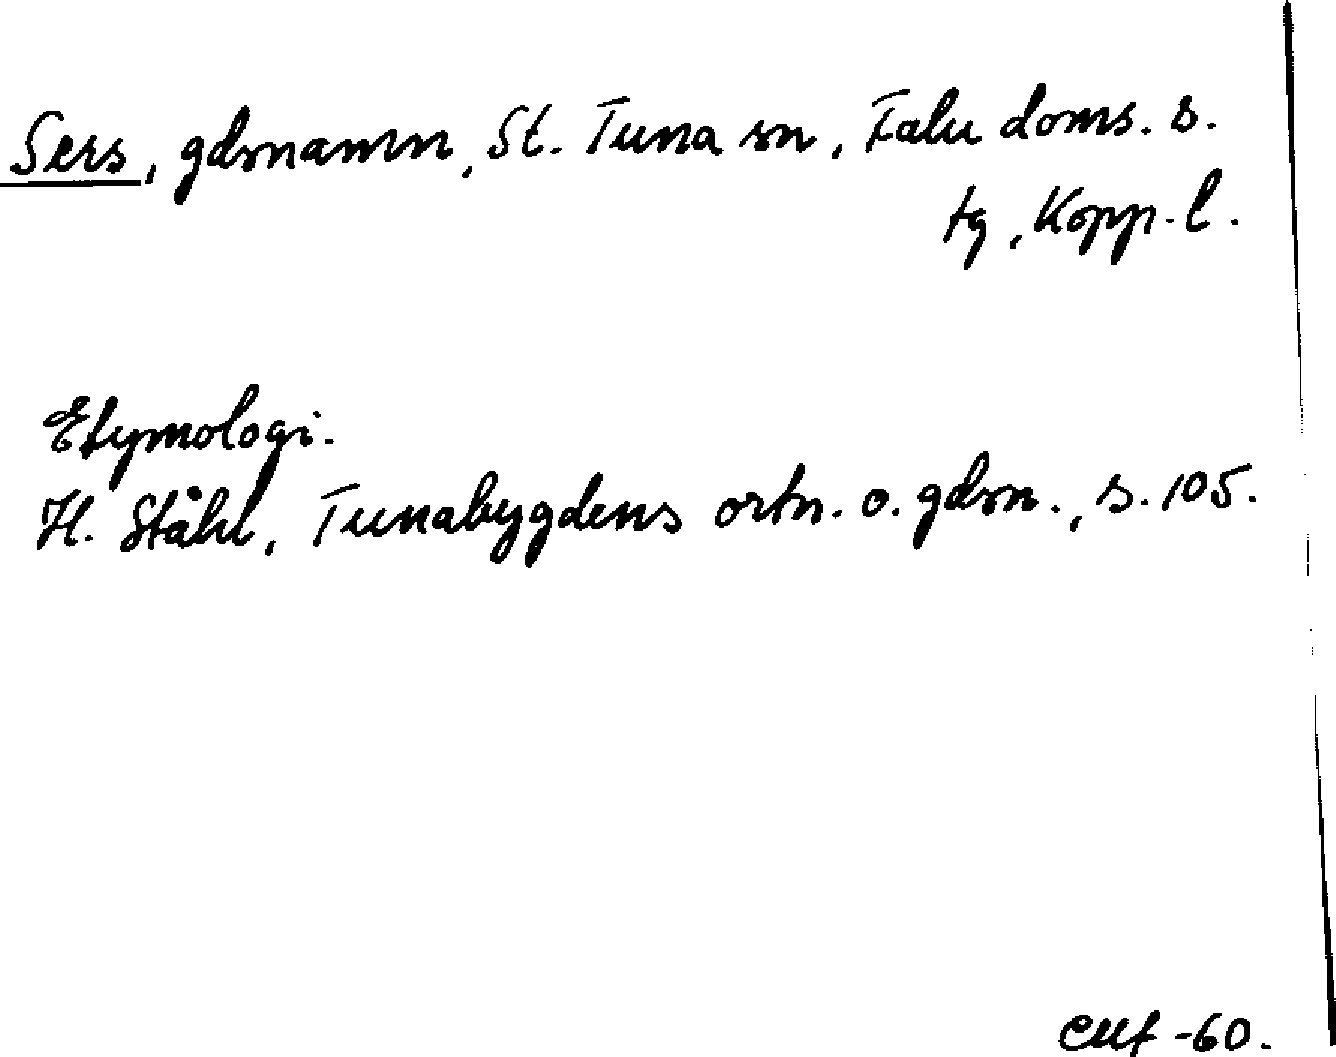 Sers, gdsnamn, St. Tuna sn, Falu doms. s.
tg, Kopp. l.
Etymologi.
H. Ståhl, Tunabygdens ortn. o. gdsn., s. 105.
-60.